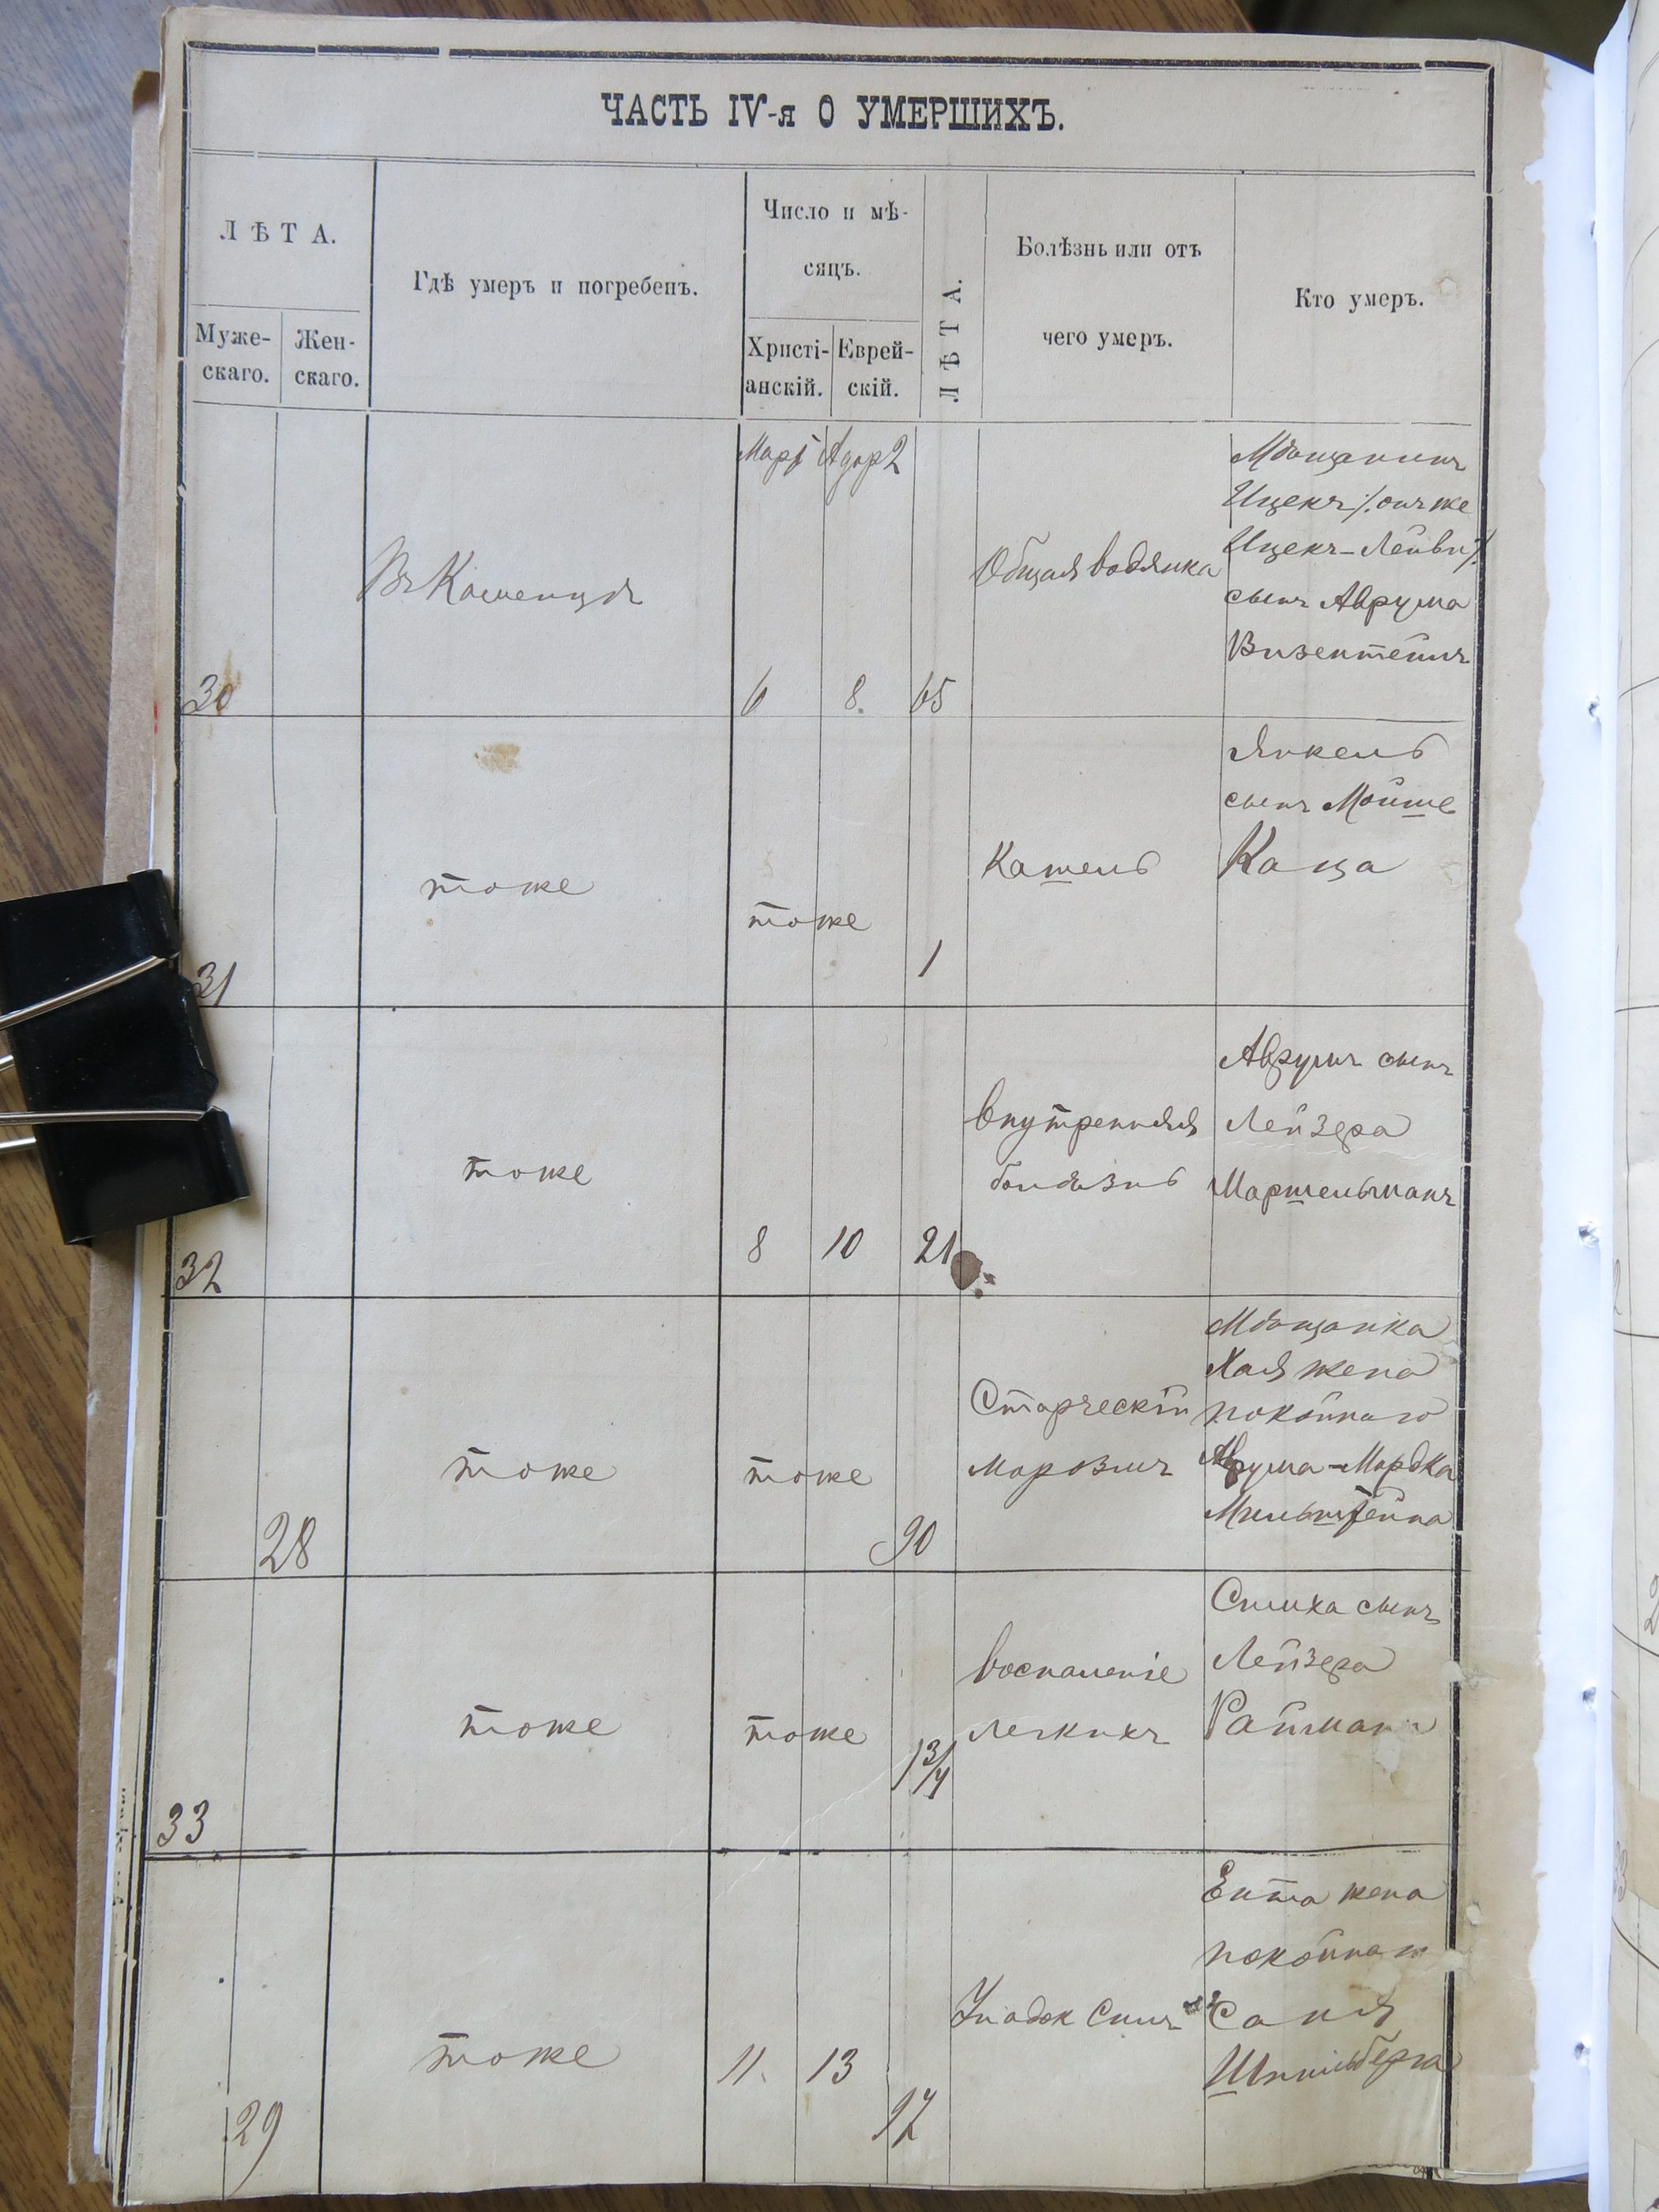 ЧАСТЬ IV-я О УМЕРШИХЪ.
ЛѢТА.
Муже-
скаго.
Жен-
скаго.
Гдѣ умеръ и погребенъ.
Число и мѣ-
сяцъ.
Христі-
анскій.
Еврей-
скій.
ЛѢТА.
Болѣзнь или отъ
чего умеръ.
Кто умеръ.
Мартъ Адар 2
30
Въ Каменцѣ
6
8.
65
Общая водянка
Мѣщанинъ
Ицекъ /. онъ же
Ицекъ-Лейви /.
сынъ Аврума
Визентейнъ
31
тоже
тоже
1
Кашель
Янкель
сынъ Мойше
Каца
32
тоже
8
10
21
внутренняя
болѣзнь
Аврумъ сынъ
Лейзера
Маршельманъ
28
тоже
тоже
90
Старческій
Маразмъ
Мѣщанка
Хая жена
покойнаго
Аврума-Мордка
Мильштейна
33
тоже
тоже
1 3/4
воспаленіе
легкихъ
Симха сынъ
Лейзера
Райзманъ
29
тоже
11.
13
97
Упадок Силъ
Ента жена
покойнаго
Саня
Шпильберга